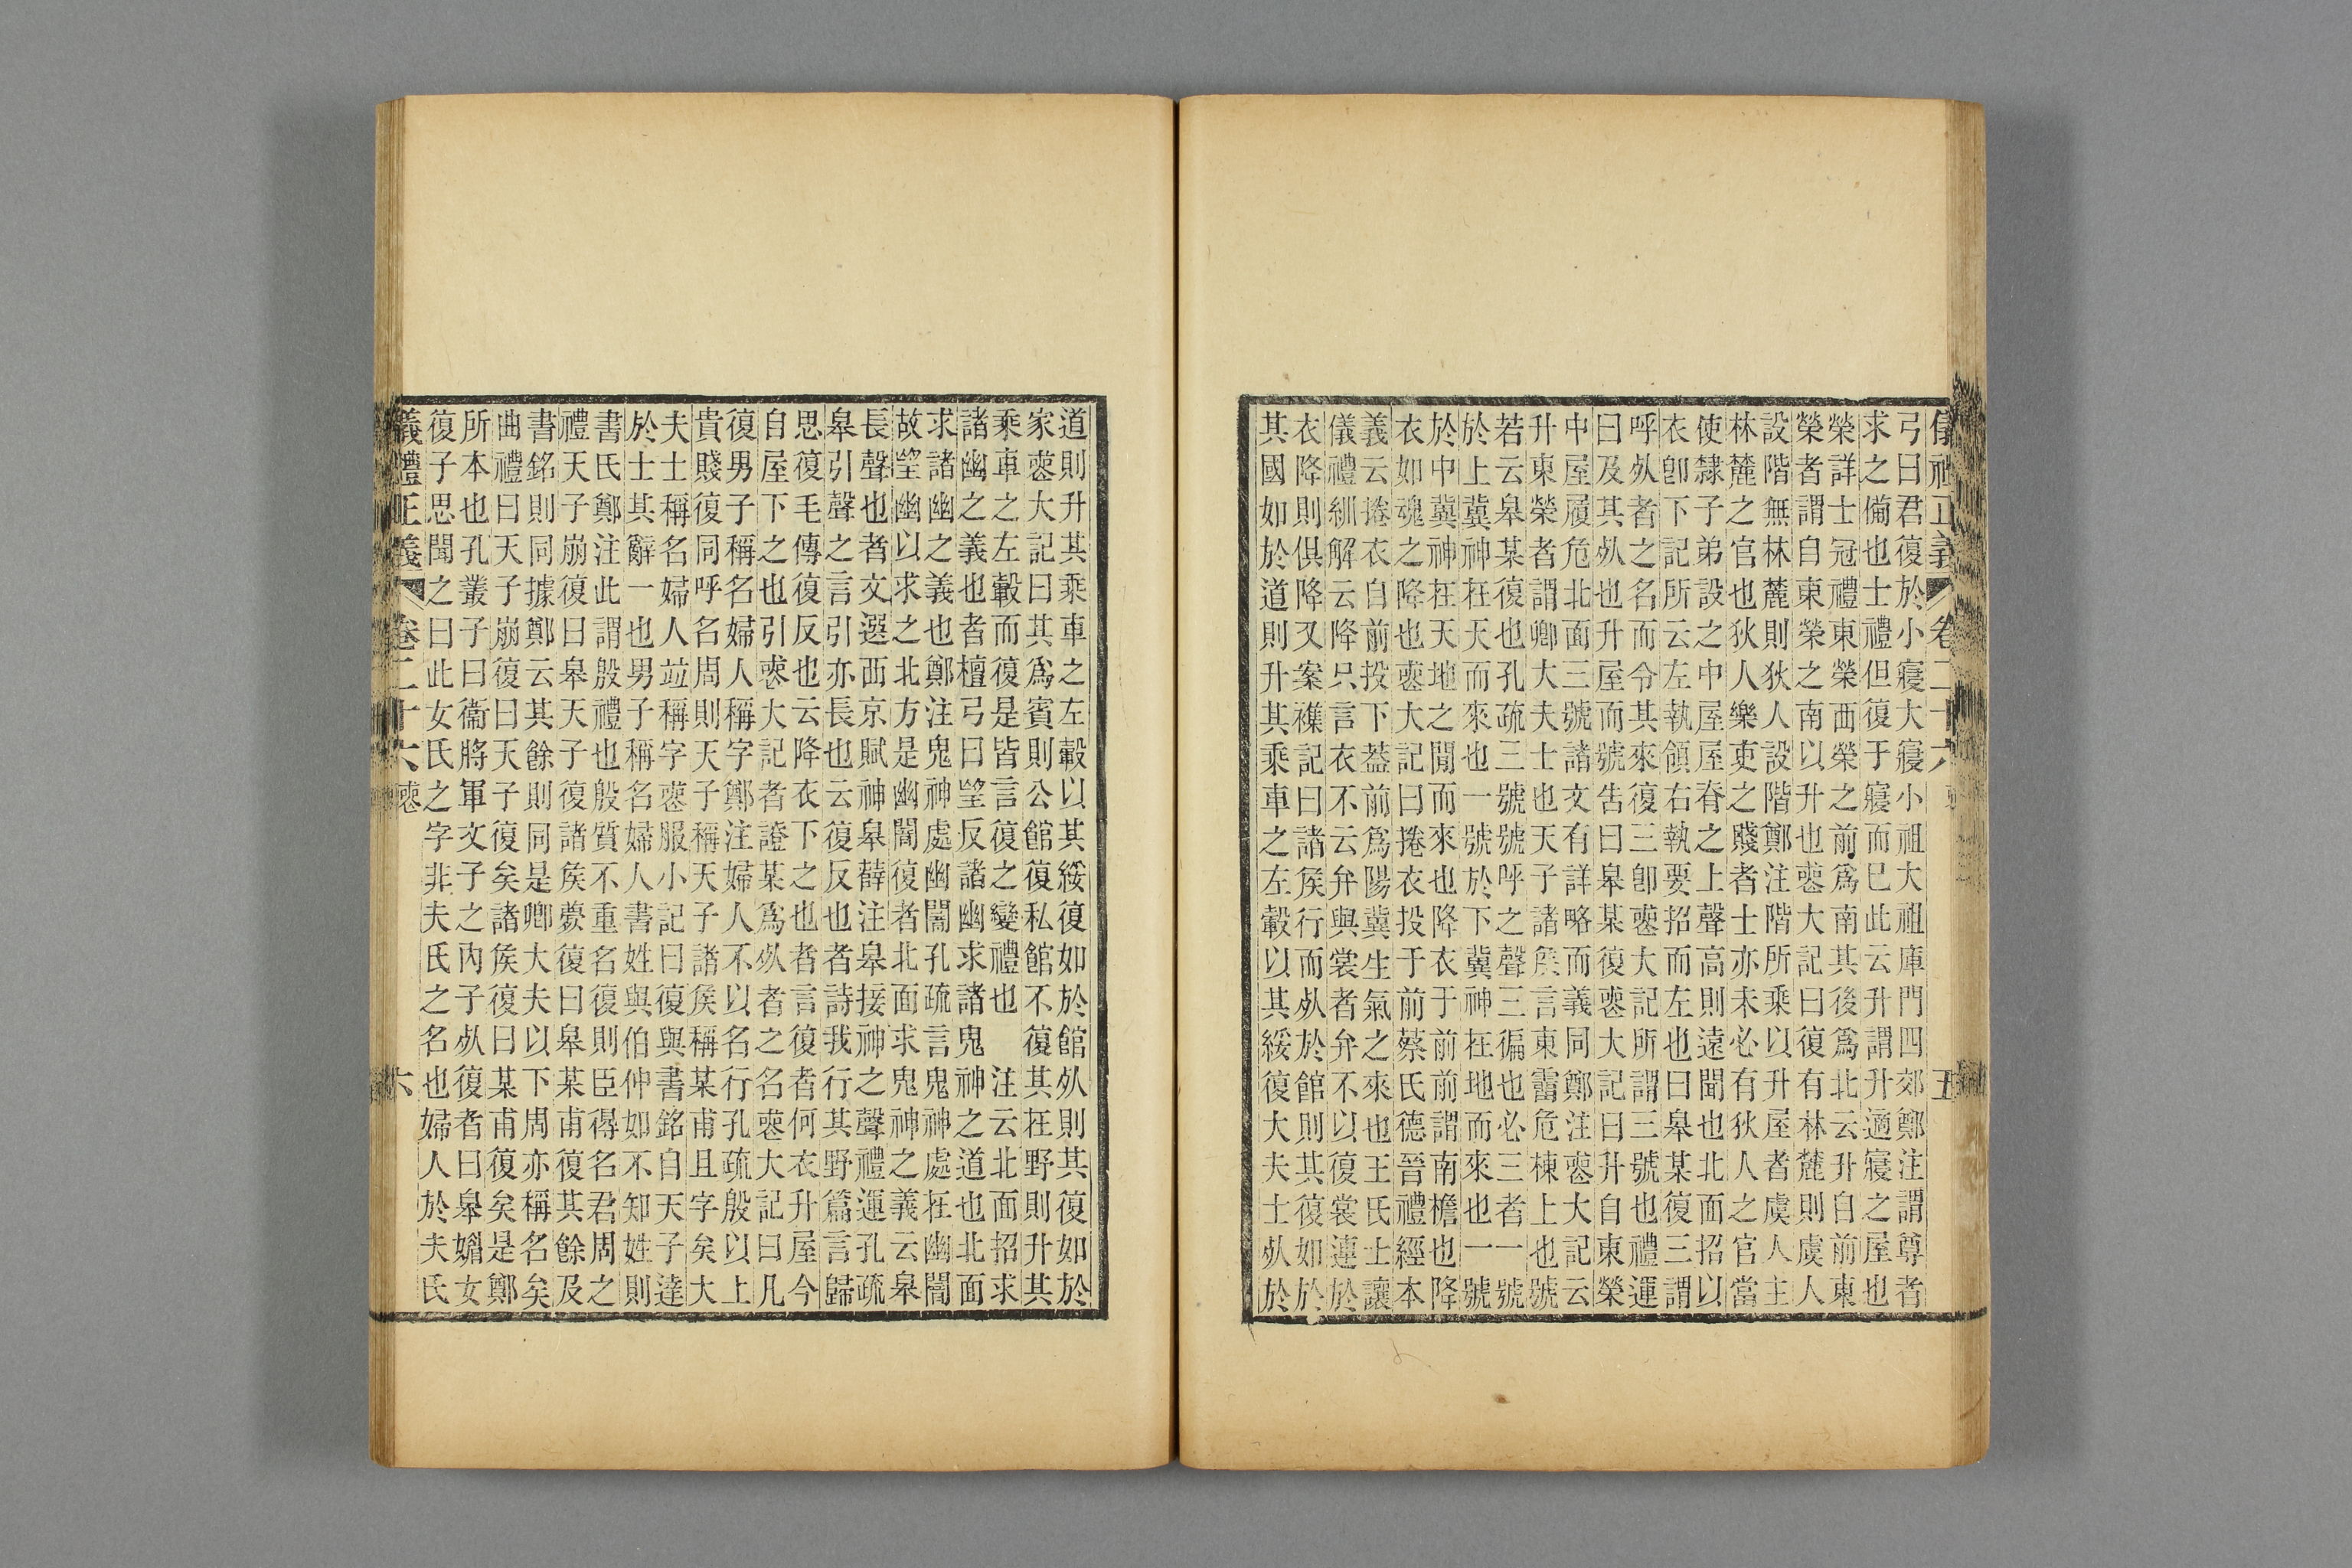 儀禮正義 卷二十六 五
弓曰君復於小寢大寢小祖大祖庫門四郊鄭注謂尊者
求之備也士禮但復于寢而已此云升謂升適寢之屋也
榮詳士冠禮東榮西榮之前爲南其後爲北云升自前東
榮者謂自東榮之南以升也喪大記曰復有林麓則虞人
設階無林麓則狄人設階鄭注階所乘以升屋者虞人主
林麓之官也狄人樂吏之賤者士亦未必有狄人之官當
使隸子弟設之中屋屋脊之上聲高則遠聞也北面招以
衣卽下記所云左執領右執要招而左也曰皋某復三謂
呼死者之名而令其來復三卽喪大記所謂三號也禮運
曰及其死也升屋而號告曰皋某復喪大記曰升自東榮
中屋履危北面三號諸文有詳略而義同鄭注喪大記云
升東榮者謂卿大夫士也天子諸侯言東霤危棟上也號
若云皋某復也孔疏三號號呼之聲三徧也必三者一號
於上冀神在天而來也一號於下冀神在地而來也一號
於中冀神在天地之閒而來也降衣于前前謂南檐也降
衣如魂之降也喪大記曰捲衣投于前蔡氏德晉禮經本
義云捲衣自前投下蓋前爲陽冀生氣之來也王氏士讓
儀禮紃解云降只言衣不云弁與裳者弁不以復裳連於
衣降則俱降又案襍記曰諸侯行而死於館則其復如於
其國如於道則升其乘車之左轂以其綏復大夫士死於
道則升其乘車之左轂以其綏復如於館死則其復如於
家喪大記曰其爲賓則公館復私館不復其在野則升其
乘車之左轂而復是皆言復之變禮也　注云北面招求
諸幽之義也者檀弓曰望反諸幽求諸鬼神之道也北面
求諸幽之義也鄭注鬼神處幽闇孔疏言鬼神處在幽闇
故望幽以求之北方是幽闇復者北面求鬼神之義云皋
長聲也者文選西京賦神皋薛注皋接神之聲禮運孔疏
皋引聲之言引亦長也云復反也者詩我行其野篇言歸
思復毛傳復反也云降衣下之也者言復者何衣升屋今
自屋下之也引喪大記者證某爲死者之名喪大記曰凡
復男子稱名婦人稱字鄭注婦人不以名行孔疏殷以上
貴賤復同呼名周則天子稱天子諸侯稱某甫且字矣大
夫士稱名婦人竝稱字喪服小記曰復與書銘自天子達
於士其辭一也男子稱名婦人書姓與伯仲如不知姓則
書氏鄭注此謂殷禮也殷質不重名復則臣得名君周之
禮天子崩復曰皋天子復諸侯薨復曰皋某甫復其餘及
書銘則同據鄭云其餘則同是卿大夫以下周亦稱名矣
曲禮曰天子崩復曰天子復矣諸侯復曰某甫復矣是鄭
所本也孔叢子曰衞將軍文子之內子死復者曰皋媚女
復子思聞之曰此女氏之字非夫氏之名也婦人於夫氏
儀禮正義 卷二十六 喪 六